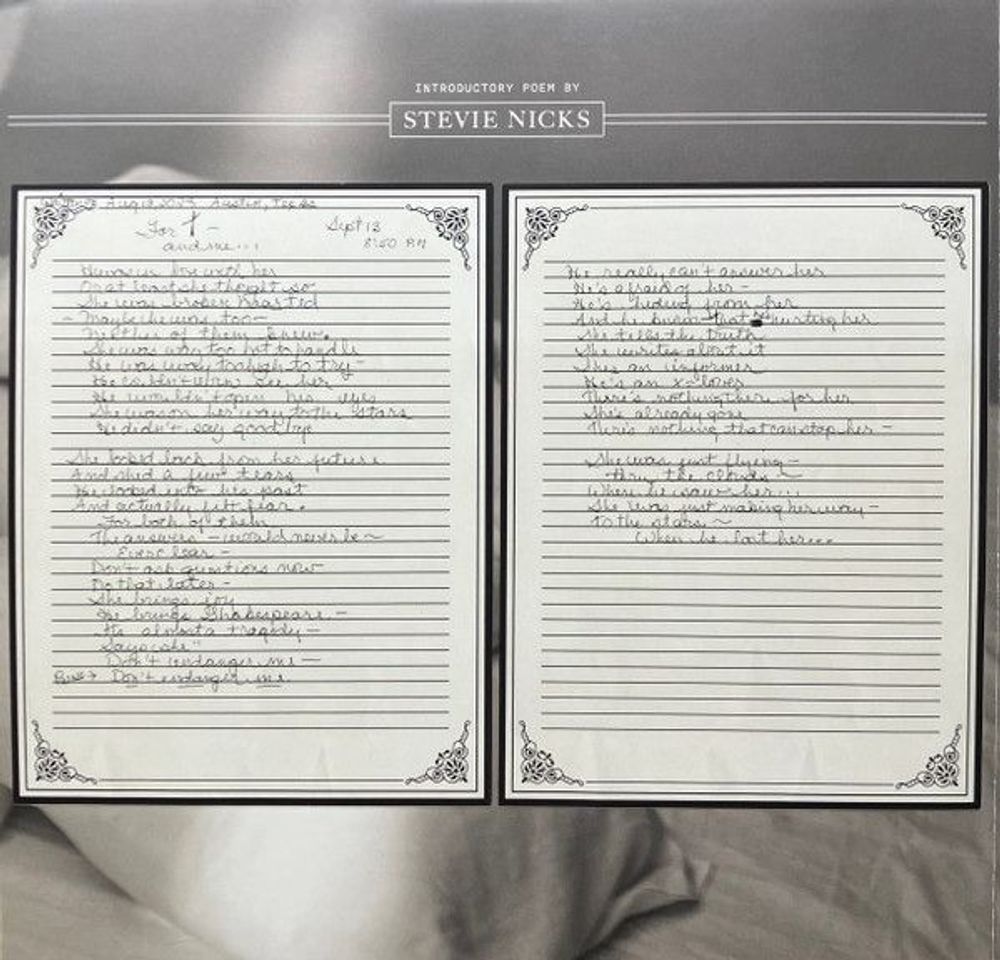 INTRODUCTORY POEM BY
STEVIE NICKS
Aug 13, 2023 Austin, Texas
For T -
and me...
Sept 13
8:50 PM
He was in love with her
Or at least she thought so
She was broken hearted
- Maybe he was too -
Neither of them knew.
She was way too hot to handle
He was way too high to try -
He couldn't even see her
He wouldn't open his eyes
She was on her way to the stars
He didn't say goodbye
She looked back from her future
And shed a few tears
He looked into his past
And actually felt fear.
For both of them
The answers - would never be ~
Ever clear -
Don't ask questions now
Do that later -
She brings joy
He brings Shakespeare -
Its almost a tragedy -
Says she"
Don't endanger me -
Don't endanger me
He really can't answer her
He's afraid of her -
He's hiding from her
And he hurting her
She tells the truth
She writes about it
She's an informer
He's an x-lover
There's nothing there for her
She's already gone
There's nothing that can stop her -
She was just flying -
thru the clouds
When he saw her...
She was just making her way -
To the stars ~
When he lost her...